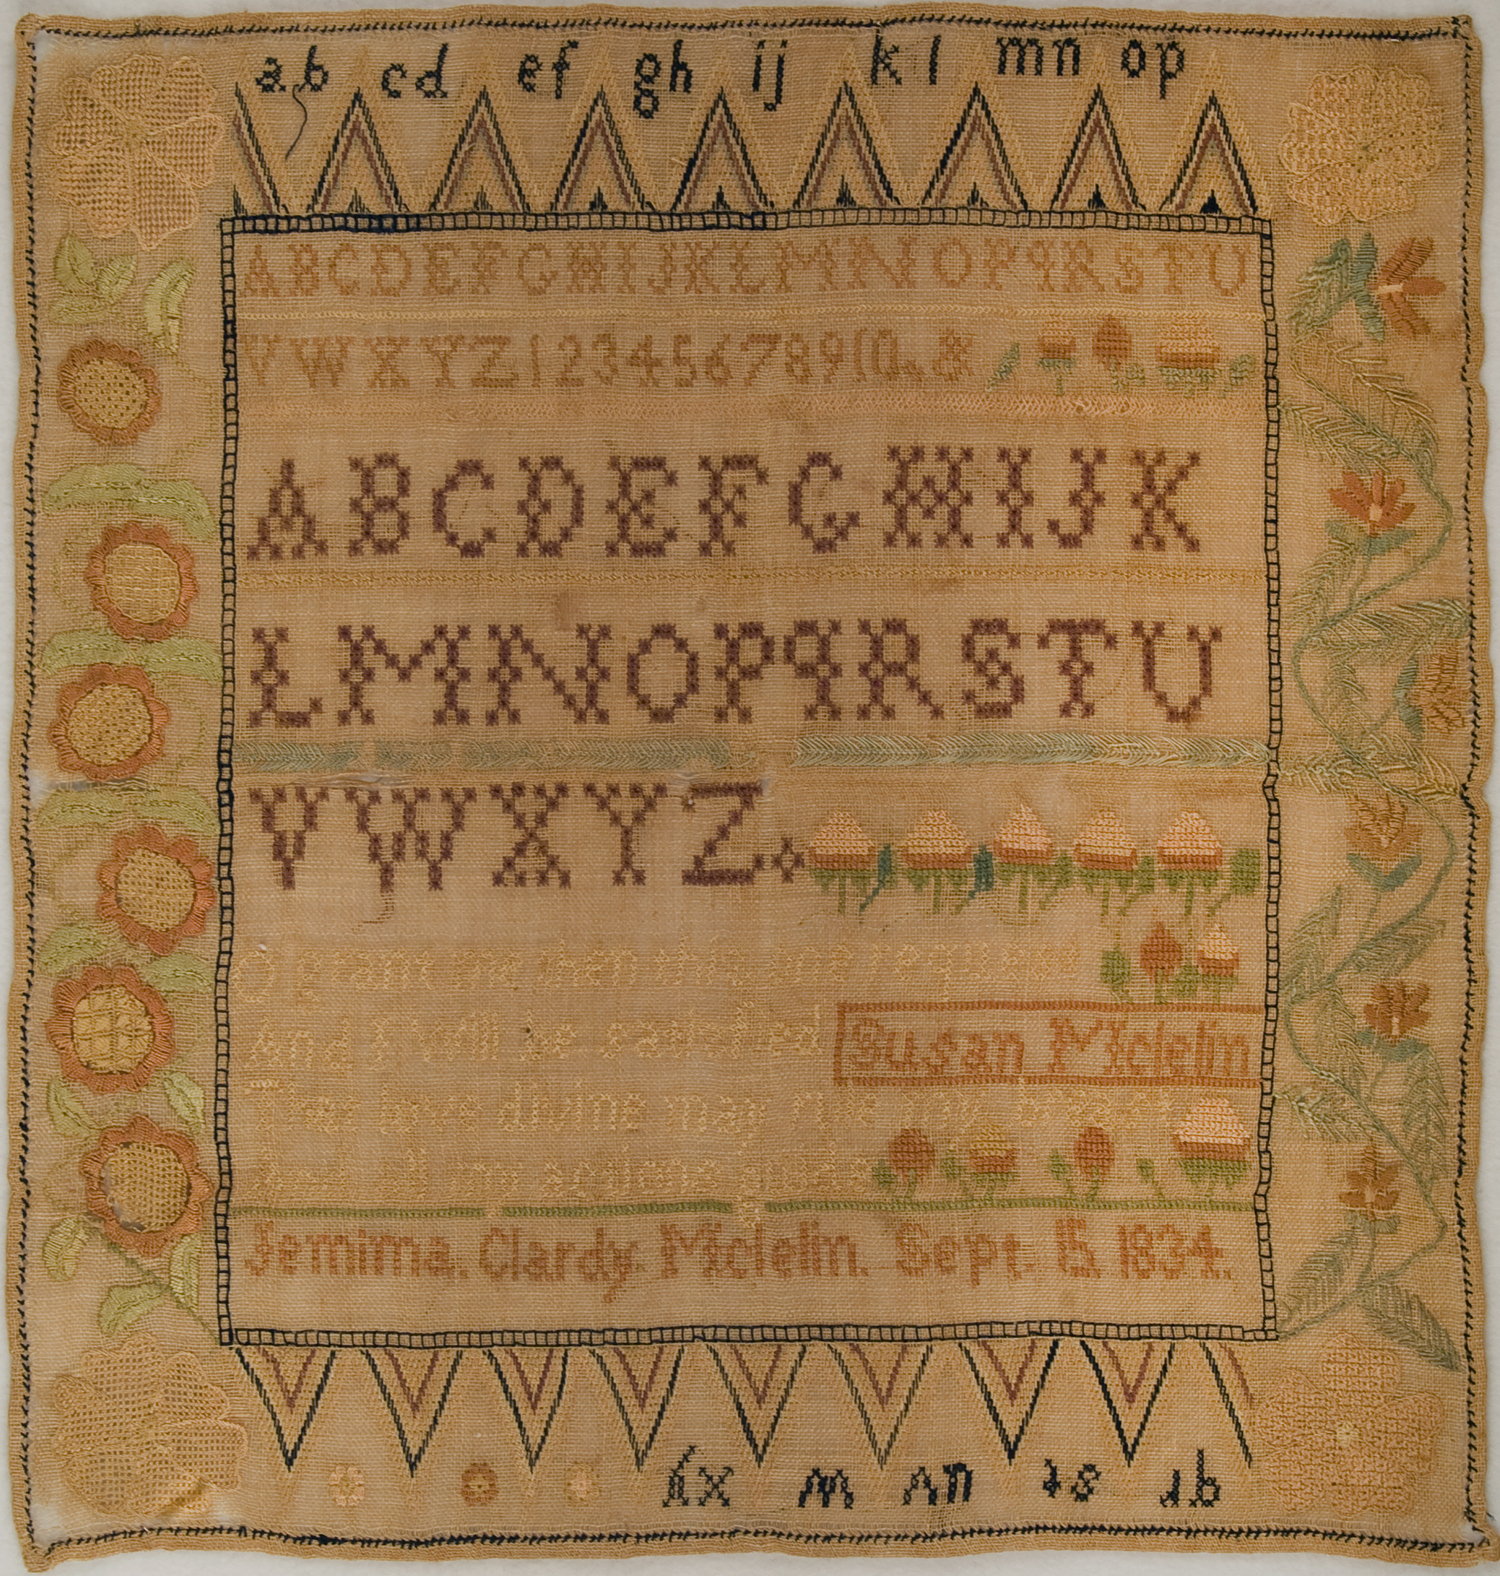 ab cd ef gh ij k l mn op
ABCDEFGHIJKLMNOPqRSTU
VWXYZ12345678910.&
ABCDEFGHIJK
LMNOPqRSTU
VWXYZ.
O grant me then this one request
And I will be satisfied
Susan Mclelin
That love divine may rule my breast
And all my actions guide
Jemima. Clardy. Mclelin. Sept. 15. 1834.
qr st uv w xy